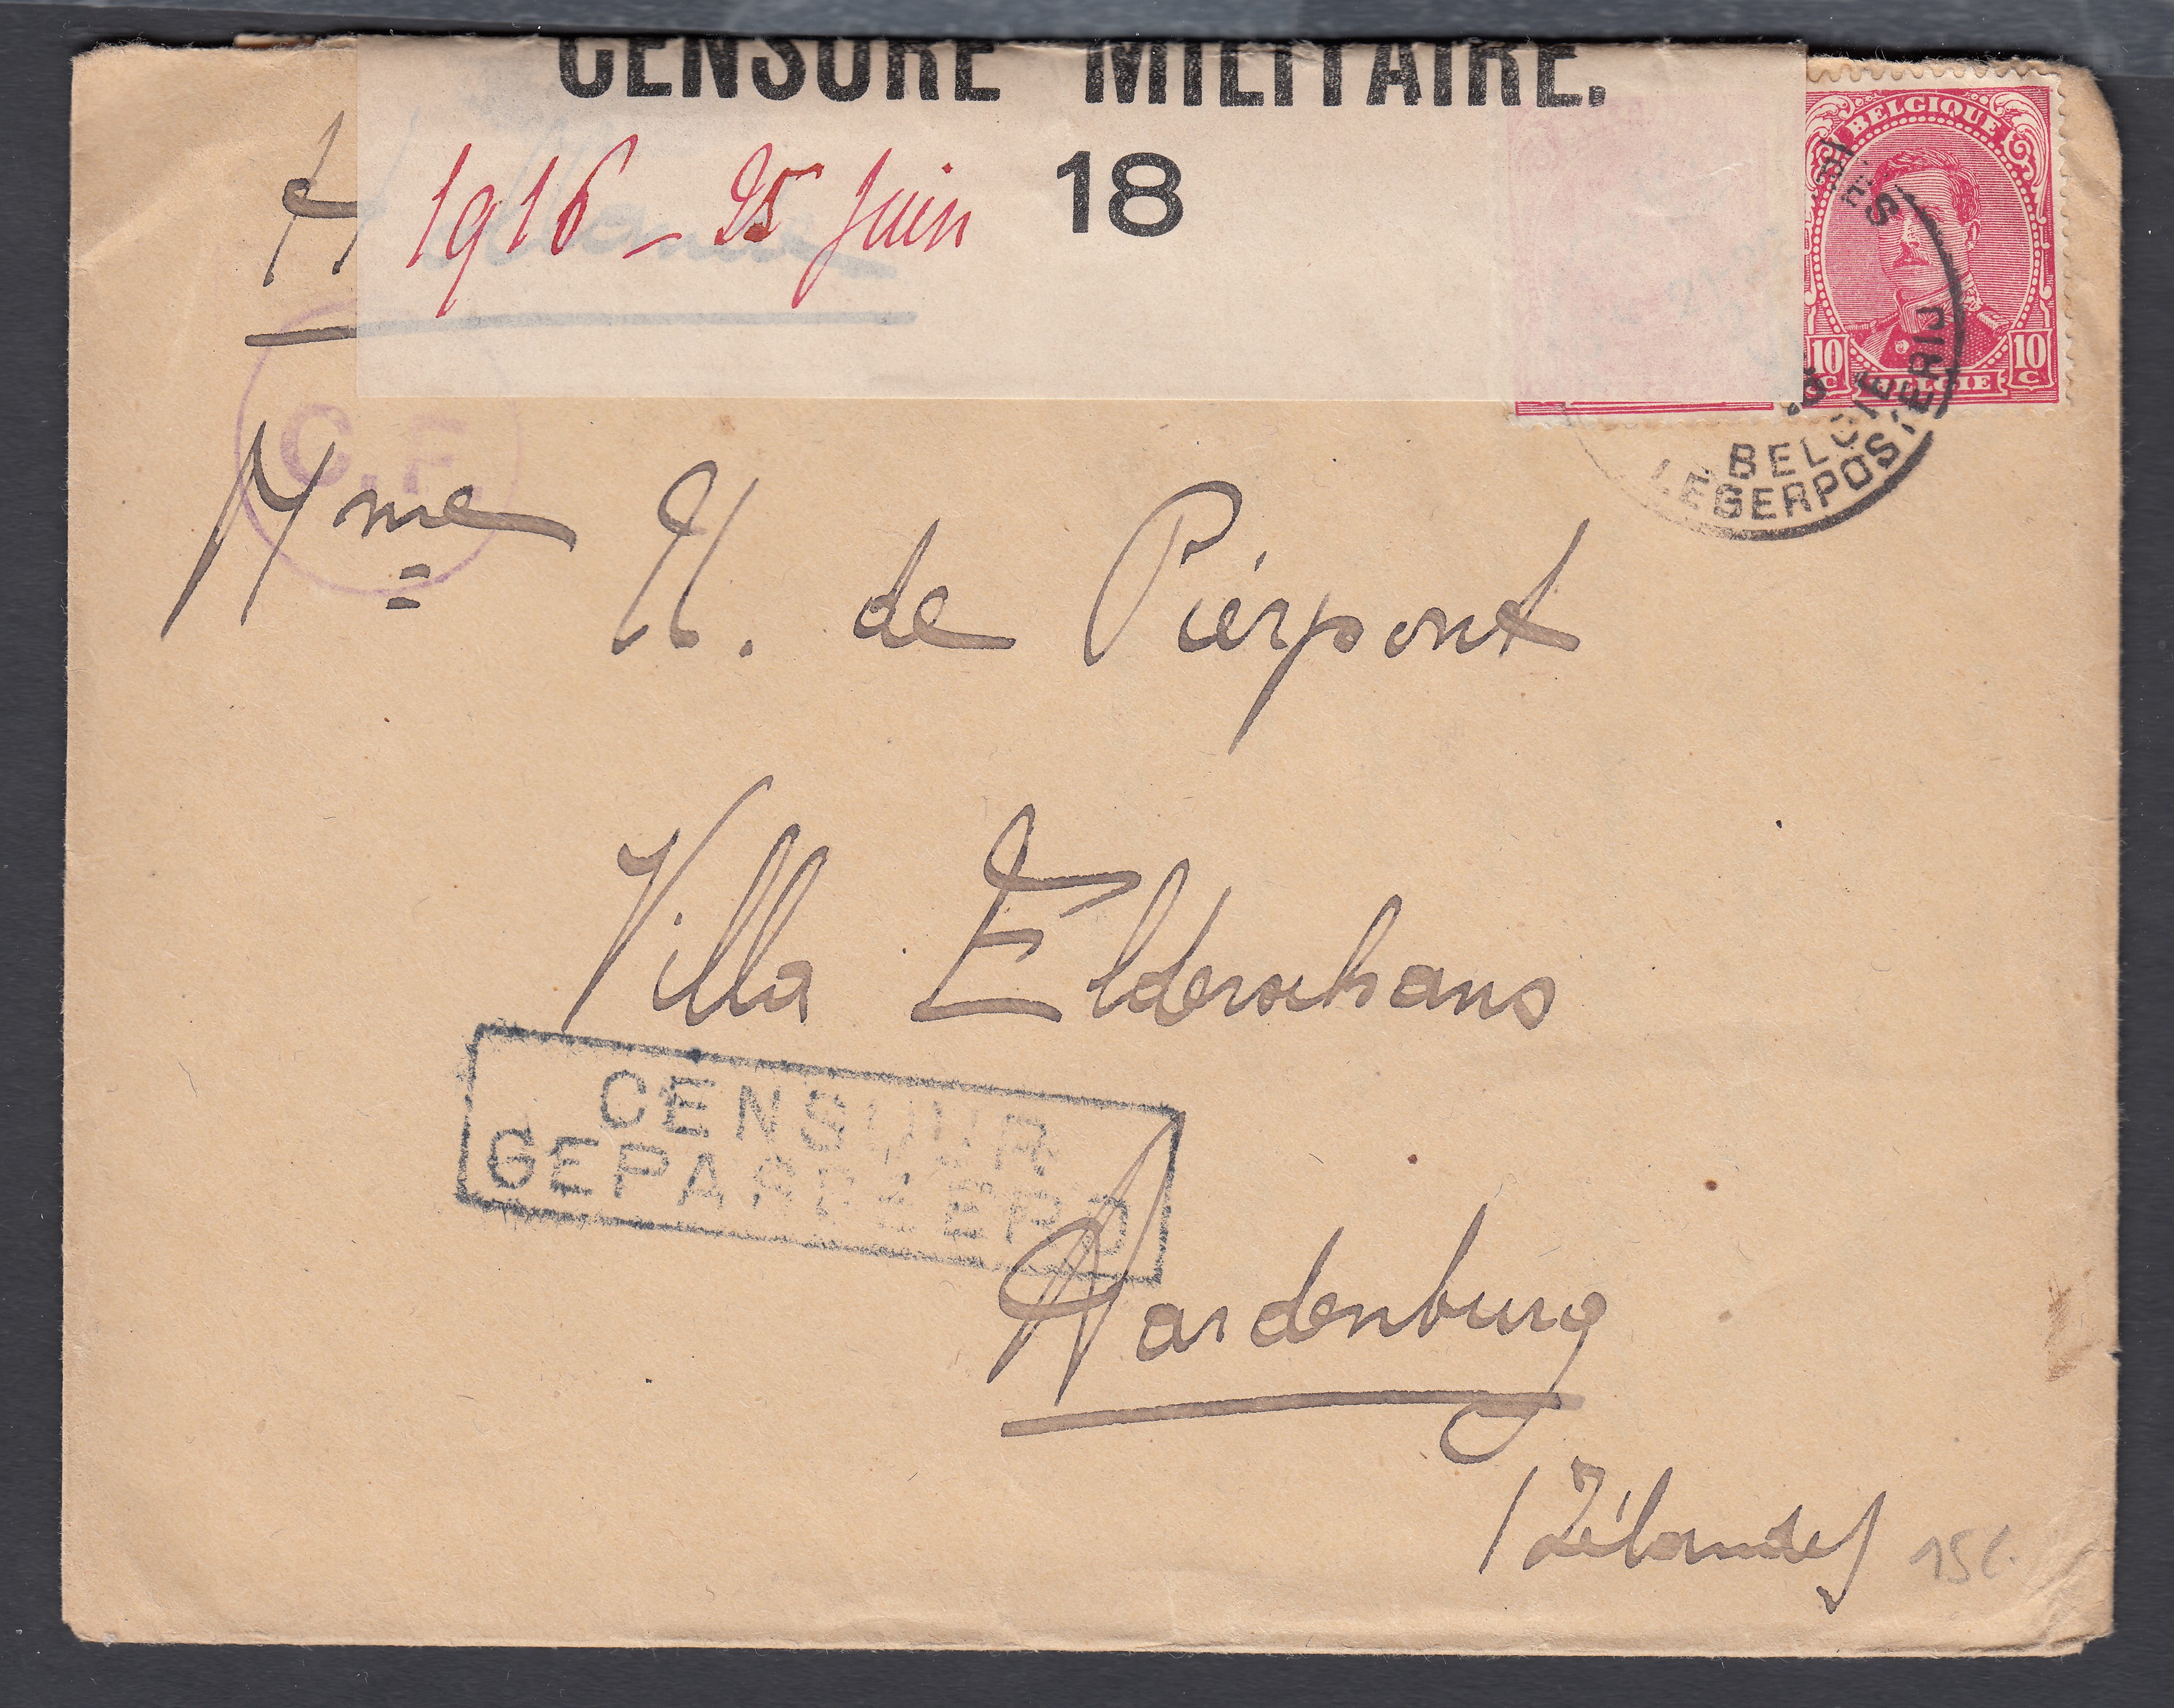 CENSURE MILITAIRE.
1916 - 25 Juin 18
BELGIQUE
10 C 10 C
BELGIE
BELGIE
LEGERPOSTERIJ
C.F.
Mme H. de Pierpont
Villa Elderschans
CENSUUR
GEPASSEERD
Aardenburg
(Zélande)
15€